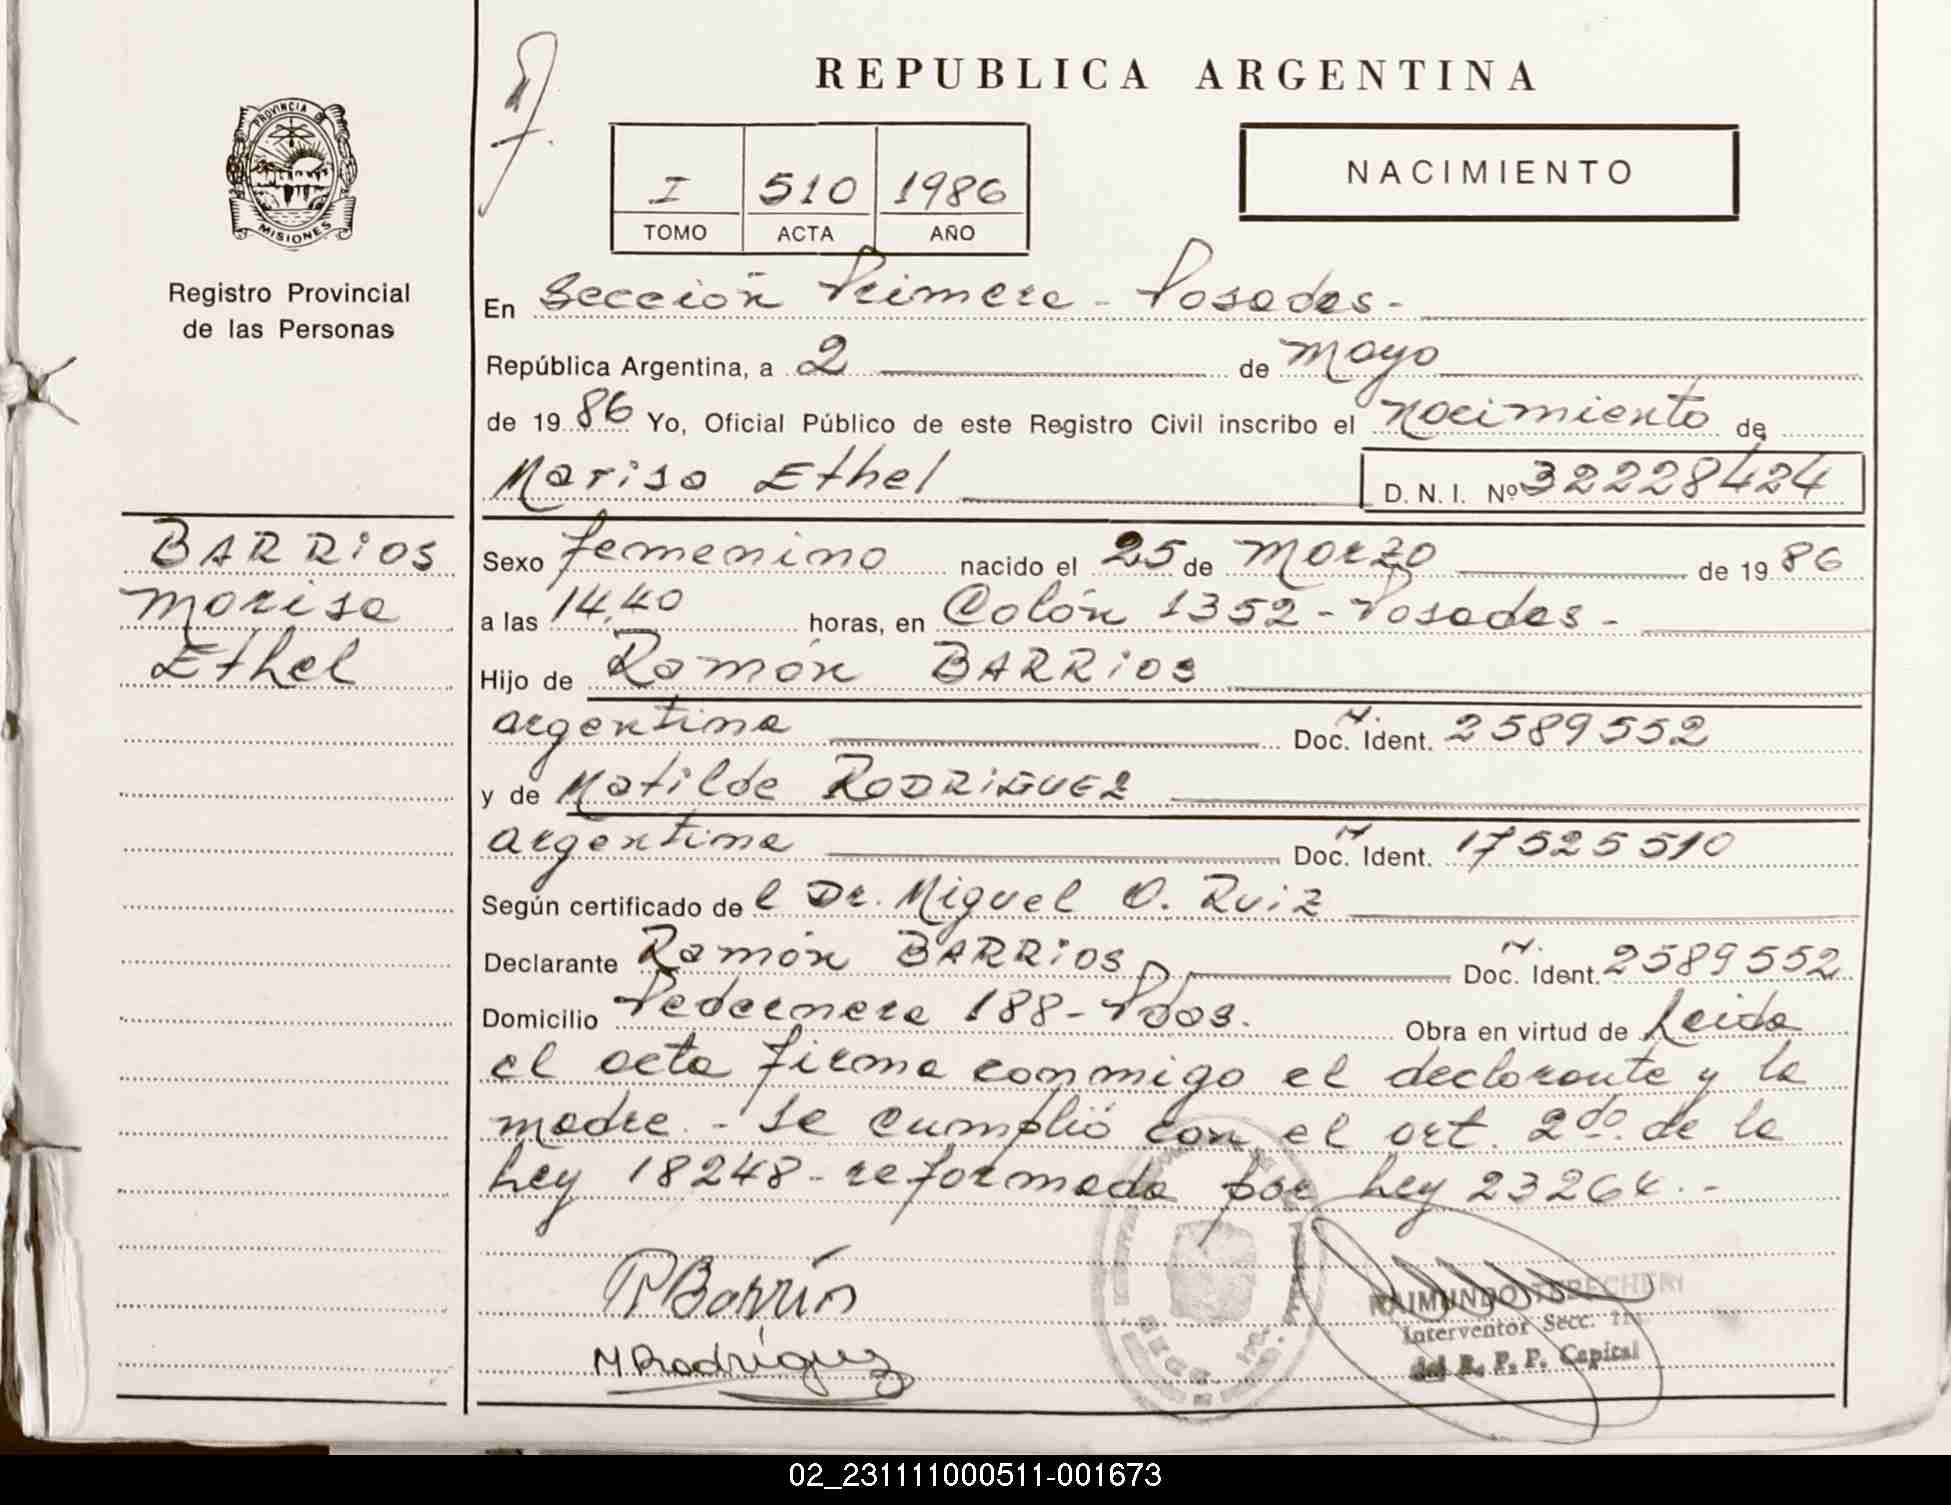 REPUBLICA ARGENTINA
PROVINCIA DE
MISIONES
Registro Provincial
de las Personas
I 510 1986
TOMO ACTA AÑO
NACIMIENTO
En Sección Primera - Posadas -
República Argentina, a 2 de mayo
de 1986 Yo, Oficial Público de este Registro Civil inscribo el nacimiento de
Marisa Ethel D. N. I. Nº 32228424
BARRIOS
Marisa
Ethel
Sexo femenino nacido el 25 de marzo de 1986
a las 14,40 horas, en Colón 1352 - Posadas -
Hijo de Ramón BARRIOS
argentina Doc. Ident. M. 2589552
y de Matilde RODRIGUEZ
argentina Doc. Ident. N. 17525510
Según certificado del Dr. Miguel O. Ruiz
Declarante Ramón BARRIOS Doc. Ident. 2589552
Domicilio Pedernera 188 - Pdas. Obra en virtud de Leida
el acta firma conmigo el declarante y la
madre. - Se cumplió con el art. 2do. de la
Ley 18248 - reformada por Ley 23264. -
R Barrios
M Rodríguez
RAIMUNDO TERECHERI
Interventor Secc.
del R. P. P. Capital
02_231111000511-001673